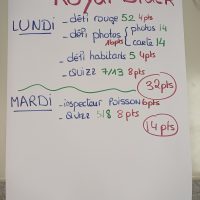 Royal Black
LUNDI - défi rouge 52 4pts
- défi photos photos 14
16pts carte 14
- défi habitants 5 4pts
- QUIZZ 7/13 8pts
32pts
MARDI - inspecteur POISSON 6pts
- QUIZZ 5/8 8pts
14pts